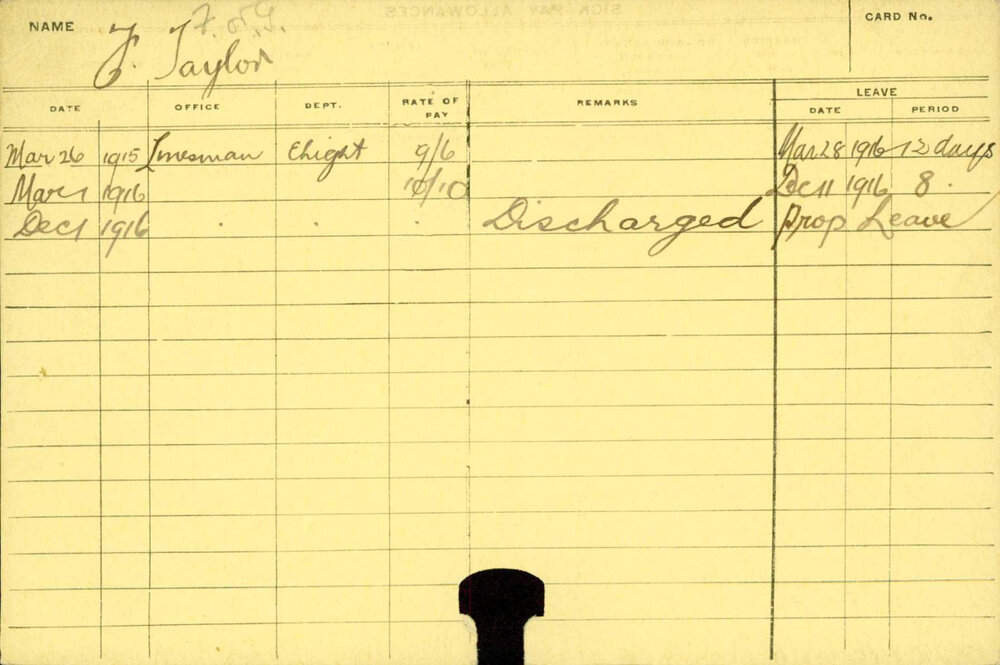 NAME F. Taylor
CARD No.
DATE OFFICE DEPT. RATE OF PAY REMARKS LEAVE
DATE PERIOD
Mar 26 1915 Linesman Elight 9/6 Mar 28 1916 12 days
Mar 1 1916 10/10 Dec 11 1916 8
Dec 1 1916 Discharged Prop Leave